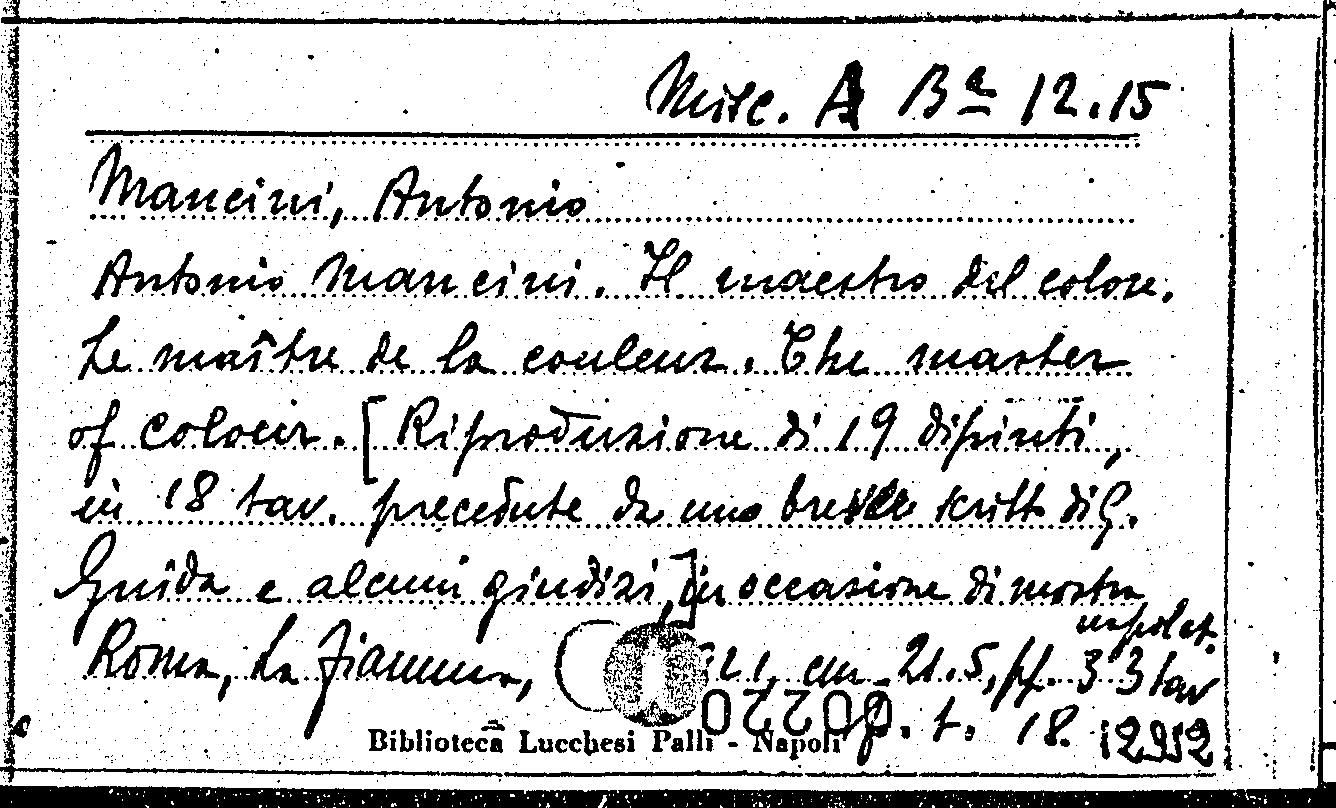 Misc. A Bª 12.15
Mancini, Antonio
Antonio Mancini. Il maestro del colore.
Le maître de la couleur. The master
of colour. [Riproduzione di 19 dipinti,
in 18 tav. precedute da uno scritto di G.
Guida e alcuni giudizi,] in occasione di mostra
napolet.
Roma, La Fiamma, cm. 21.5, pp. 33 tav
p. t. 18. 12912
Biblioteca Lucchesi Palli - Napoli